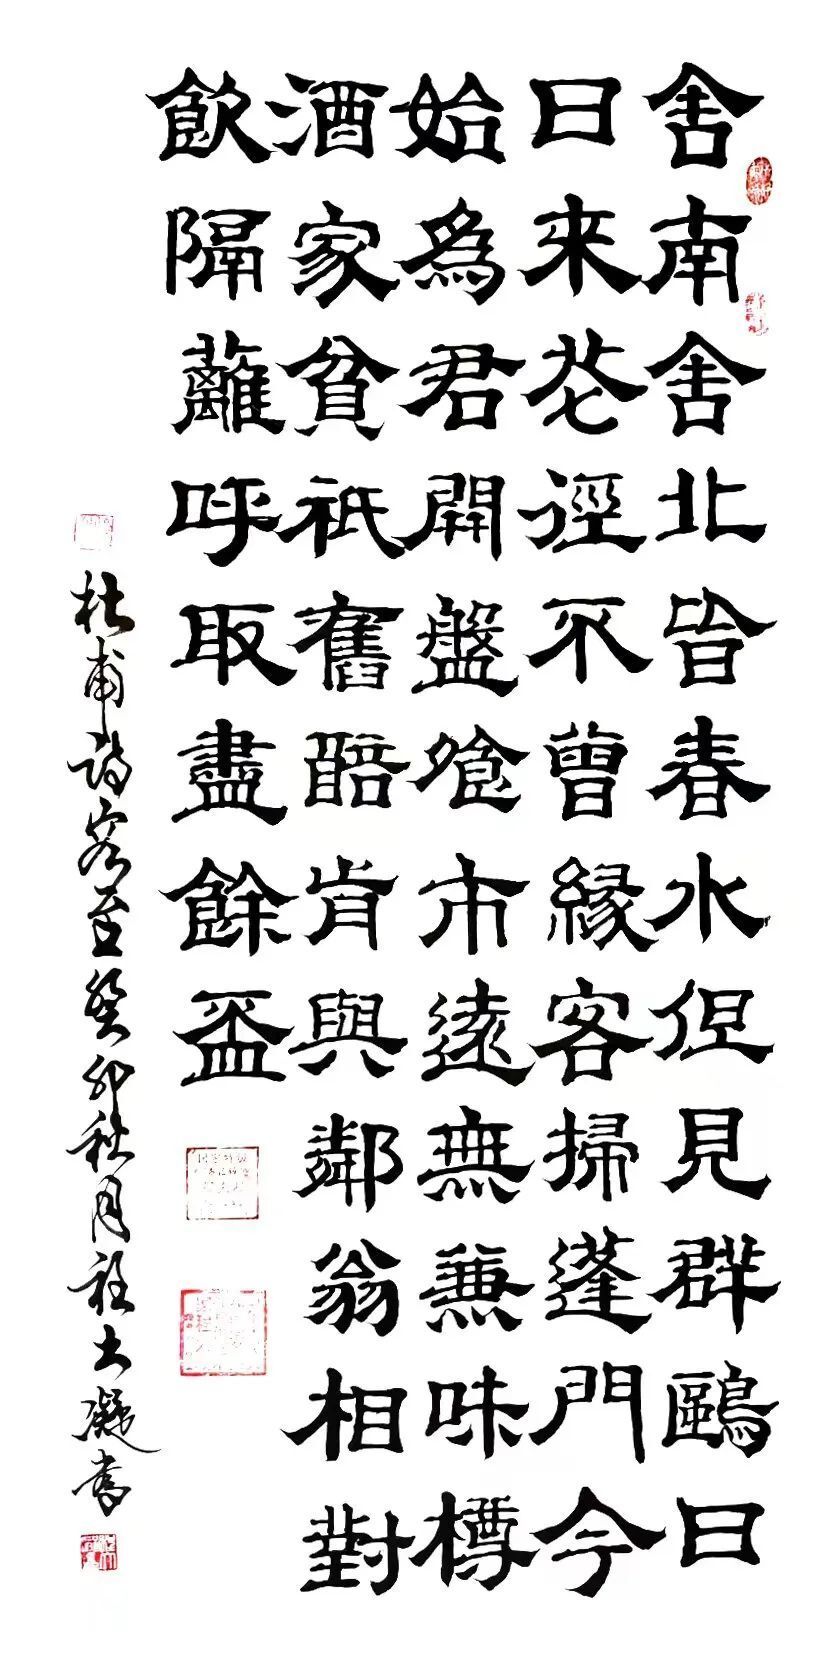 舍南舍北皆春水但見群鷗日
日來花徑不曾緣客掃蓬門今
始為君開盤飧市遠無兼味樽
酒家貧衹舊醅肯與鄰翁相對
飲隔蘺呼取盡餘盃
杜甫詩客至癸卯秋月凝書